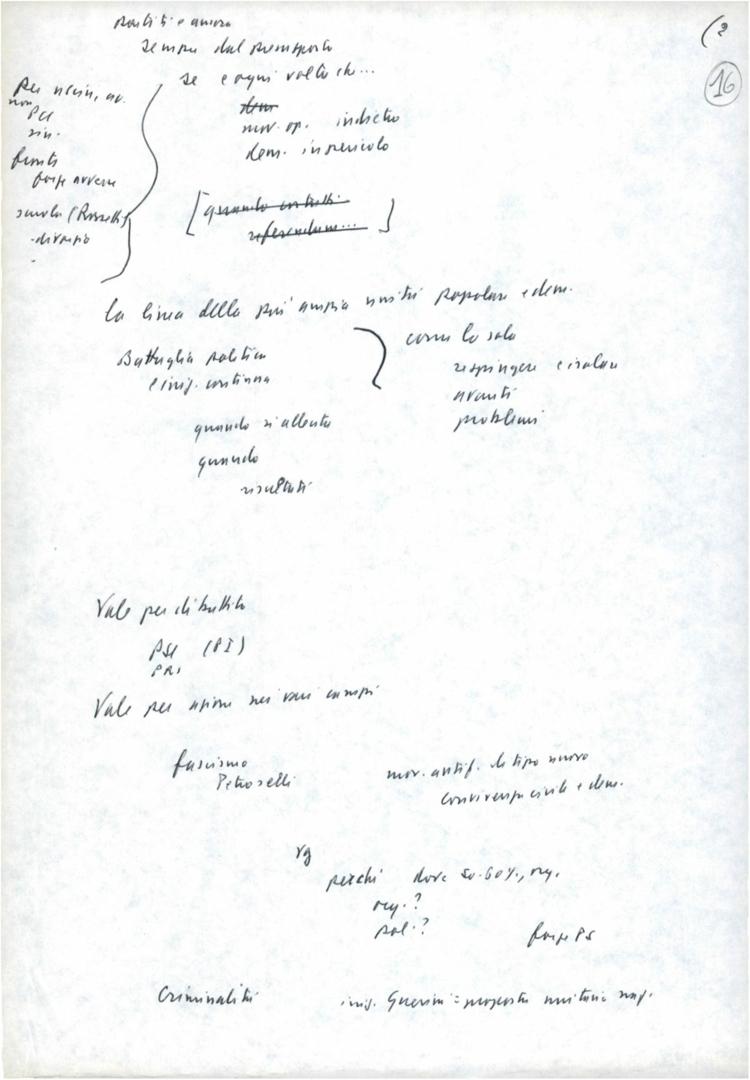 (2
16
partiti e ancora
sempre dal
se e ogni volta che...
dem
mov. op. indietro
dem. in pericolo
[quando
referendum...]
per
non
PCI
sin.
fronti
forze avverse
scuola (Rossetti)
-divorzio
-
la linea della più ampia unità popolare e dem.
Battaglia politica
e iniz. continua
quando si allenta
quando
risultati
come la sola
respingere e isolare
avanti
problemi
Vale per dibattito
PSI (PI)
PRI
Vale per azione nei vari campi
fascismo
Petroselli
mov. antif. di tipo nuovo
convivenza civile e dem.
rg
perché dove 50-60%, org.
org.?
pol.?
forze PS
Criminalità
iniz. Guerini = proposta unitaria